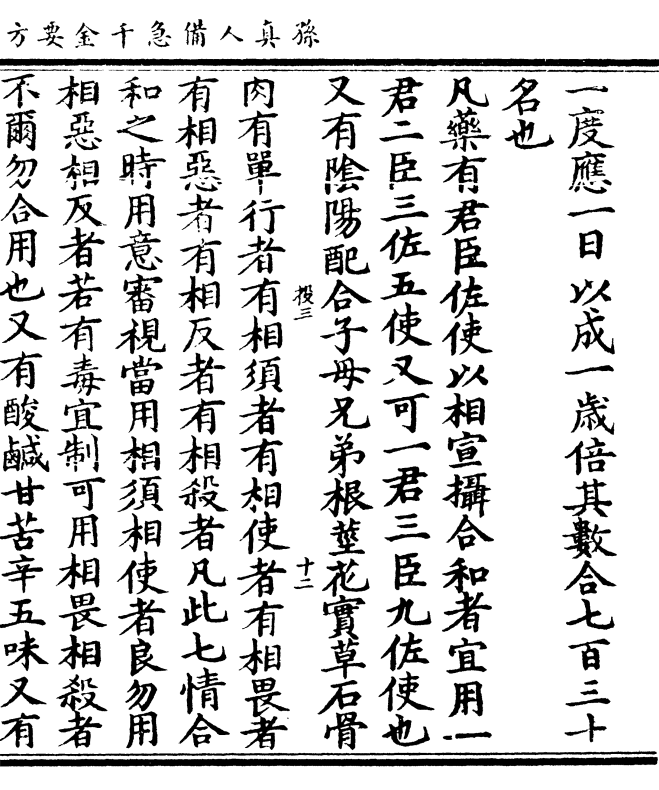 孫真人備急千金要方
一度應一日以成一歲倍其數合七百三十
名也
凡藥有君臣佐使以相宣攝合和者宜用一
君二臣三佐五使又可一君三臣九佐使也
又有陰陽配合子母兄弟根莖花實草石骨
投三
十二
肉有單行者有相須者有相使者有相畏者
有相惡者有相反者有相殺者凡此七情合
和之時用意審視當用相須相使者良勿用
相惡相反者若有毒宜制可用相畏相殺者
不爾勿合用也又有酸鹹甘苦辛五味又有